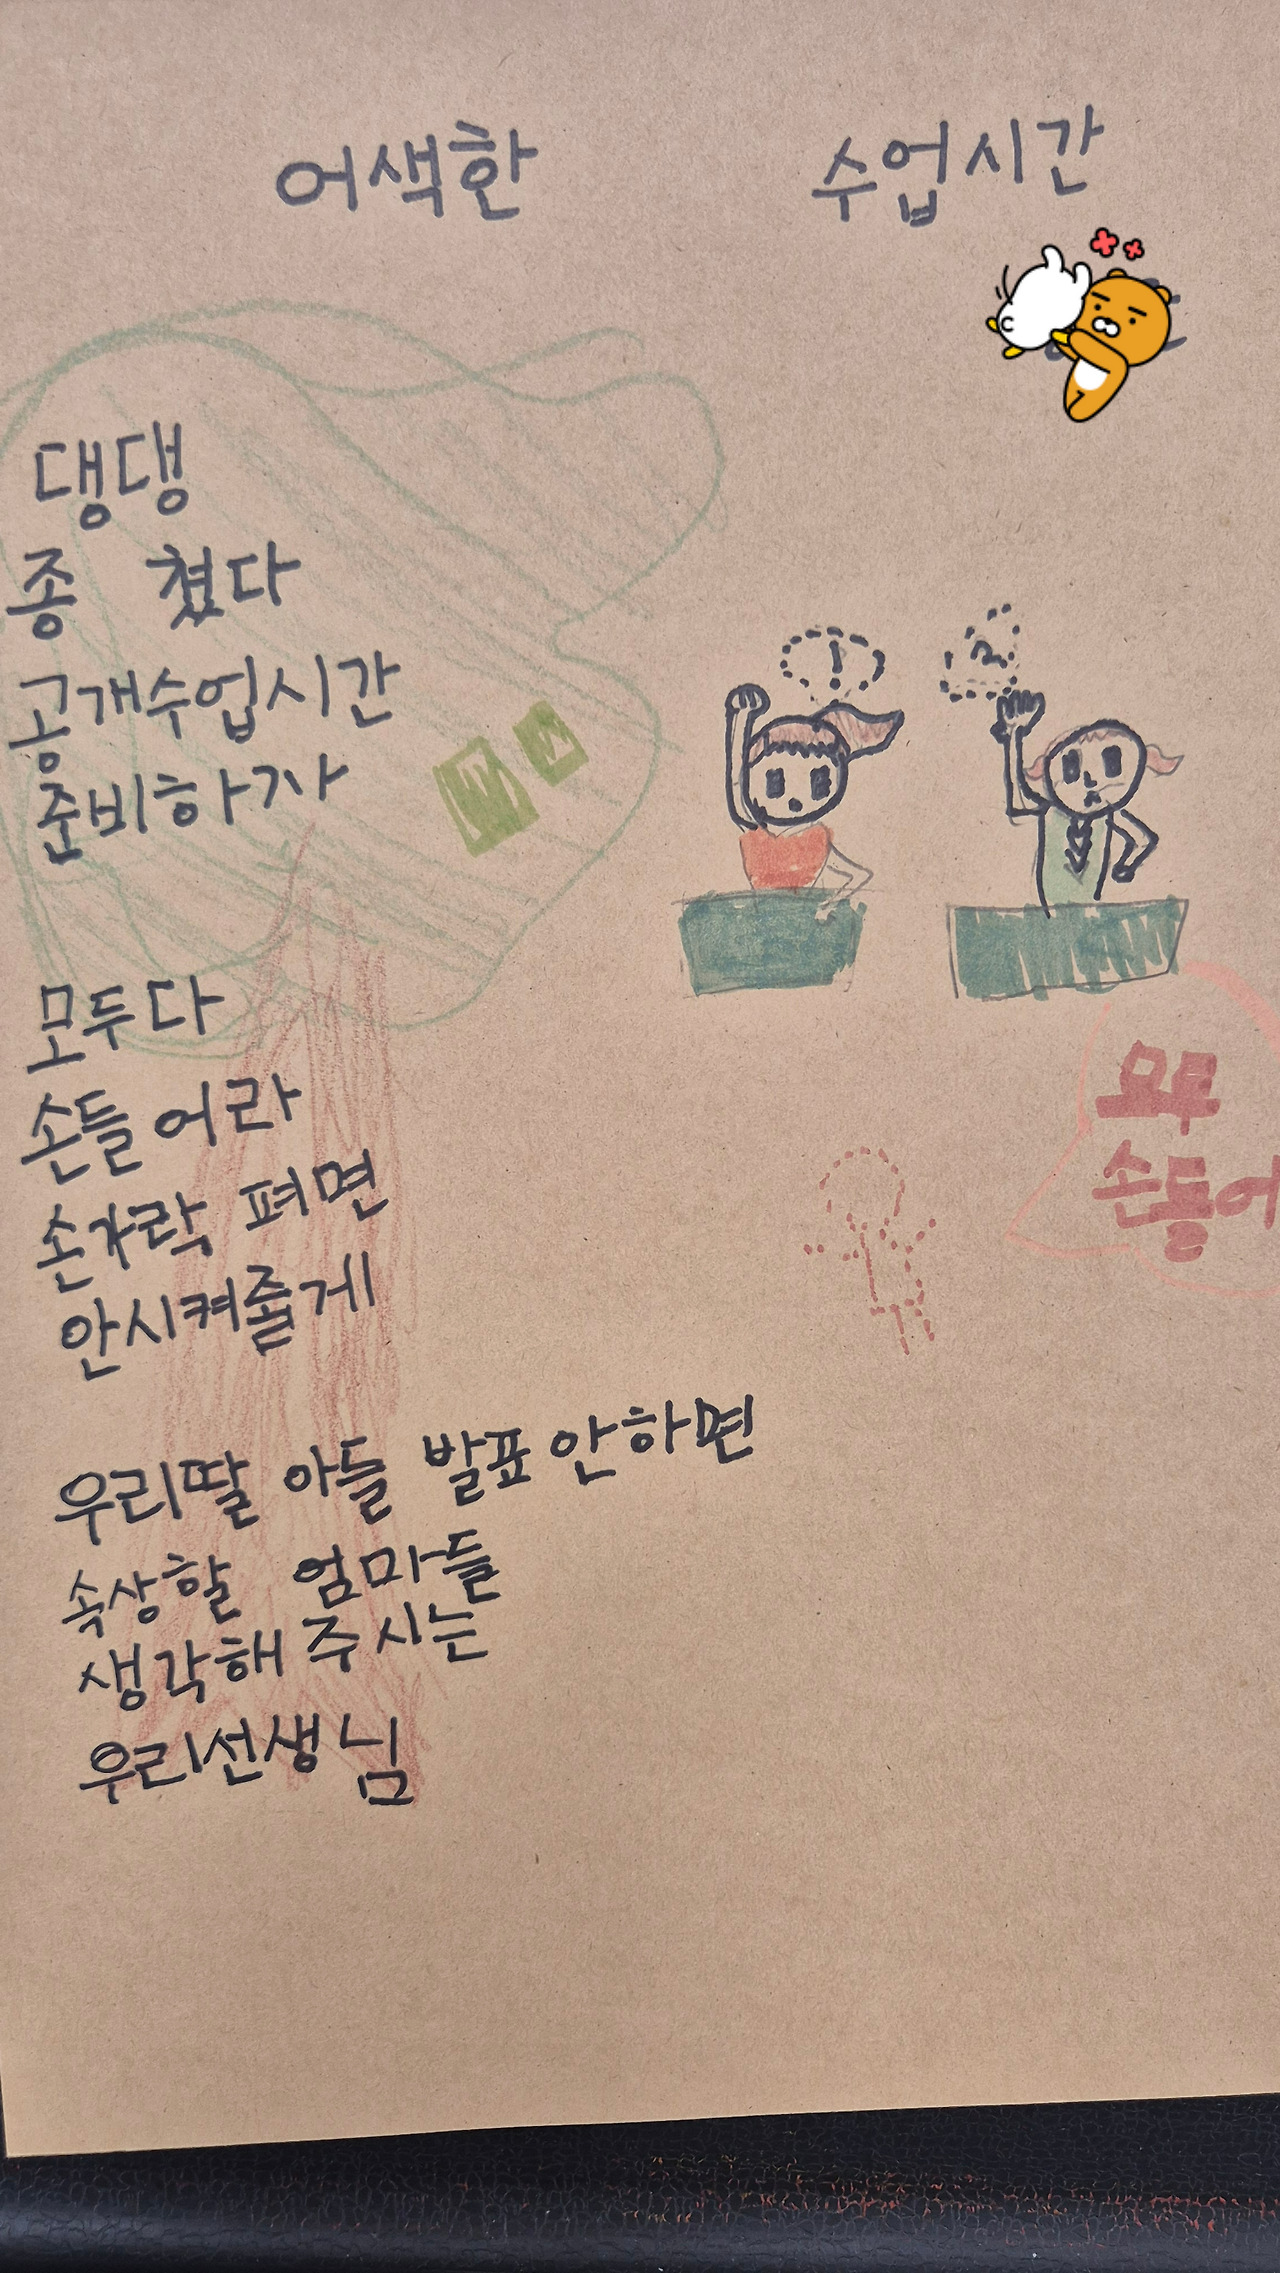 어색한 수업시간
댕댕
종 쳤다
공개수업시간
준비하자
모두다
손들어라
손가락 펴면
안시켜줄게
우리딸 아들 발표안하면
속상할 엄마들
생각해주시는
우리선생님
!
모두
손들어